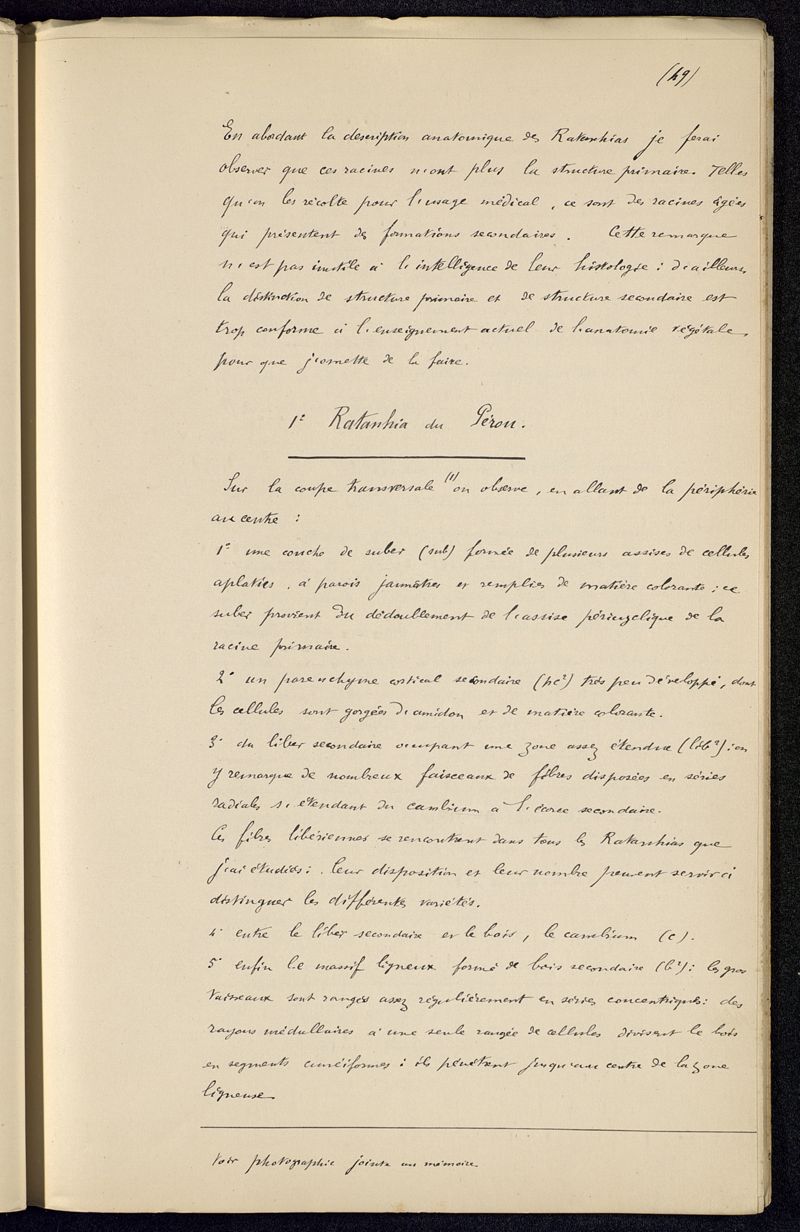 (49)
En abordant la description anatomique des Ratanhias je ferai
observer que ces racines n'ont plus la structure primaire. Telles
qu'on les récolte pour l'usage médical, ce sont des racines âgées
qui présentent des formations secondaires. Cette remarque
n'est pas inutile à l'intelligence de leur histologie : d'ailleurs,
la distinction de structure primaire et de structure secondaire est
trop conforme à l'enseignement actuel de l'anatomie végétale,
pour que j'omette de la faire.
1° Ratanhia du Pérou.
Sur la coupe transversale (1) on observe, en allant de la périphérie
au centre :
1° une couche de suber (sub) formée de plusieurs assises de cellules
aplaties, à parois jaunâtres et remplies de matière colorante ; ce
suber provient du dédoublement de l'assise péricyclique de la
racine primaire.
2° un parenchyme cortical secondaire (pc²) très peu développé, dont
les cellules sont gorgées d'amidon et de matière colorante.
3° du liber secondaire occupant une zone assez étendue (lib²) : on
y remarque de nombreux faisceaux de fibres disposées en séries
radiales s'étendant du cambium à l'écorce secondaire.
Ces fibres libériennes se rencontrent dans tous les Ratanhias que
j'ai étudiés : leur disposition et leur nombre peuvent servir à
distinguer les différentes variétés.
4° entre le liber secondaire et le bois, le cambium (c).
5° enfin le massif ligneux formé de bois secondaire (b²) : les gros
vaisseaux sont rangés assez régulièrement en séries concentriques : des
rayons médullaires à une seule rangée de cellules divisent le bois
en segments cunéiformes : ils pénètrent jusqu'au centre de la zone
ligneuse.
Voir photographie jointe au mémoire.